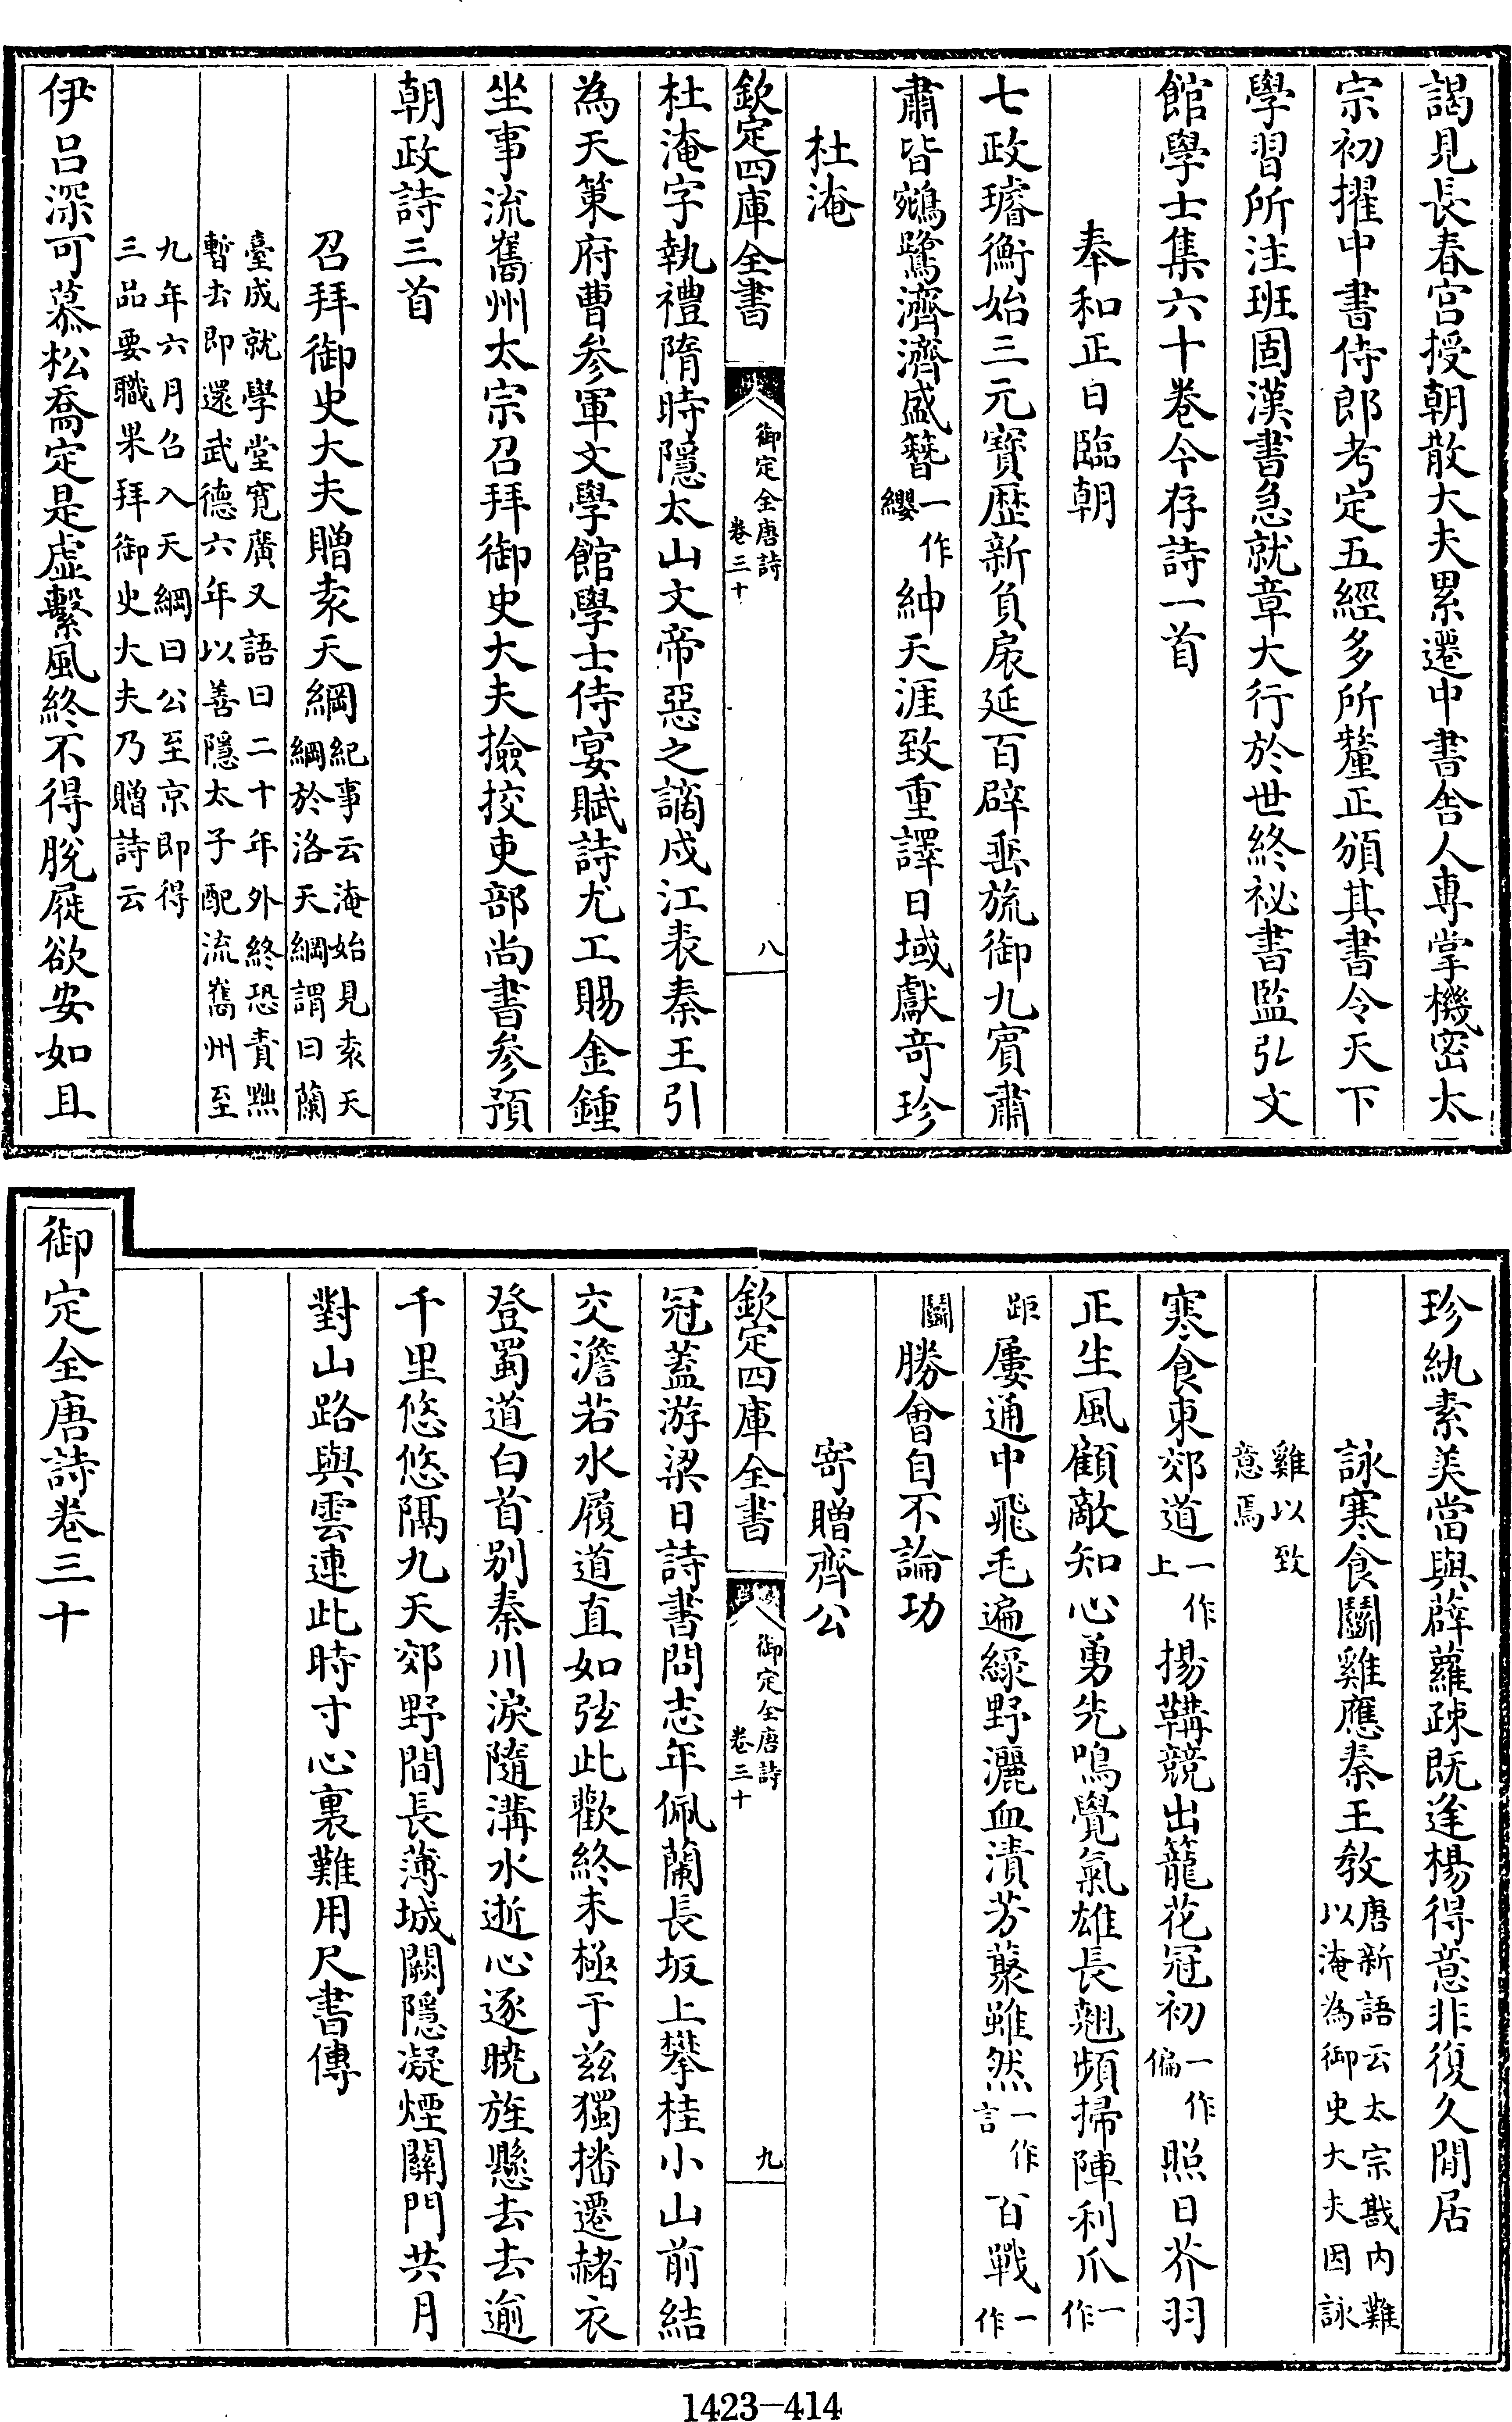 謁見長春宮授朝散大夫累遷中書舎人專掌機密太
宗初擢中書侍郎考定五經多所釐正頒其書令天下
學習所注班固漢書急就章大行於世終祕書監弘文
館學士集六十卷今存詩一首
奉和正日臨朝
七政璿衡始三元寶歴新負扆延百辟垂旒御九賓肅
肅皆鵷鷺濟濟盛簪一作纓紳天涯致重譯日域獻奇珍
杜淹
欽定四庫全書
御定全唐詩
卷三十
八
杜淹字執禮隋時隱太山文帝惡之謫戍江表秦王引
為天策府曹參軍文學館學士侍宴賦詩尤工賜金鍾
坐事流巂州太宗召拜御史大夫撿挍吏部尚書參預
朝政詩三首
召拜御史大夫贈袁天綱紀事云淹始見袁天
綱於洛天綱謂曰蘭
臺成就學堂寛廣又語曰二十年外終恐責黜
暫去即還武德六年以善隱太子配流巂州至
九年六月召入天綱曰公至京即得
三品要職果拜御史大夫乃贈詩云
伊吕深可慕松喬定是虚繫風終不得脫屣欲安如且
珍紈素美當與薜蘿疎既逢楊得意非復久閒居
詠寒食鬭雞應秦王教唐新語云太宗戡内難
以淹為御史大夫因詠
雞以致
意焉
寒食東郊道一作上揚鞲競出籠花冠初一作偏照日芥羽
正生風顧敵知心勇先鳴覺氣雄長翹頻掃陣利爪一作
距屢通中飛毛遍綠野灑血漬芳藂雖然一作言百戰一作
鬭勝會自不論功
寄贈齊公
欽定四庫全書
御定全唐詩
卷三十
九
冠蓋游梁日詩書問志年佩蘭長坂上攀桂小山前結
交澹若水履道直如弦此歡終未極于兹獨播遷赭衣
登蜀道白首别秦川淚隨溝水逝心逐曉旌懸去去逾
千里悠悠隔九天郊野間長薄城闕隱凝煙關門共月
對山路與雲連此時寸心裏難用尺書傳
御定全唐詩卷三十
1423-414